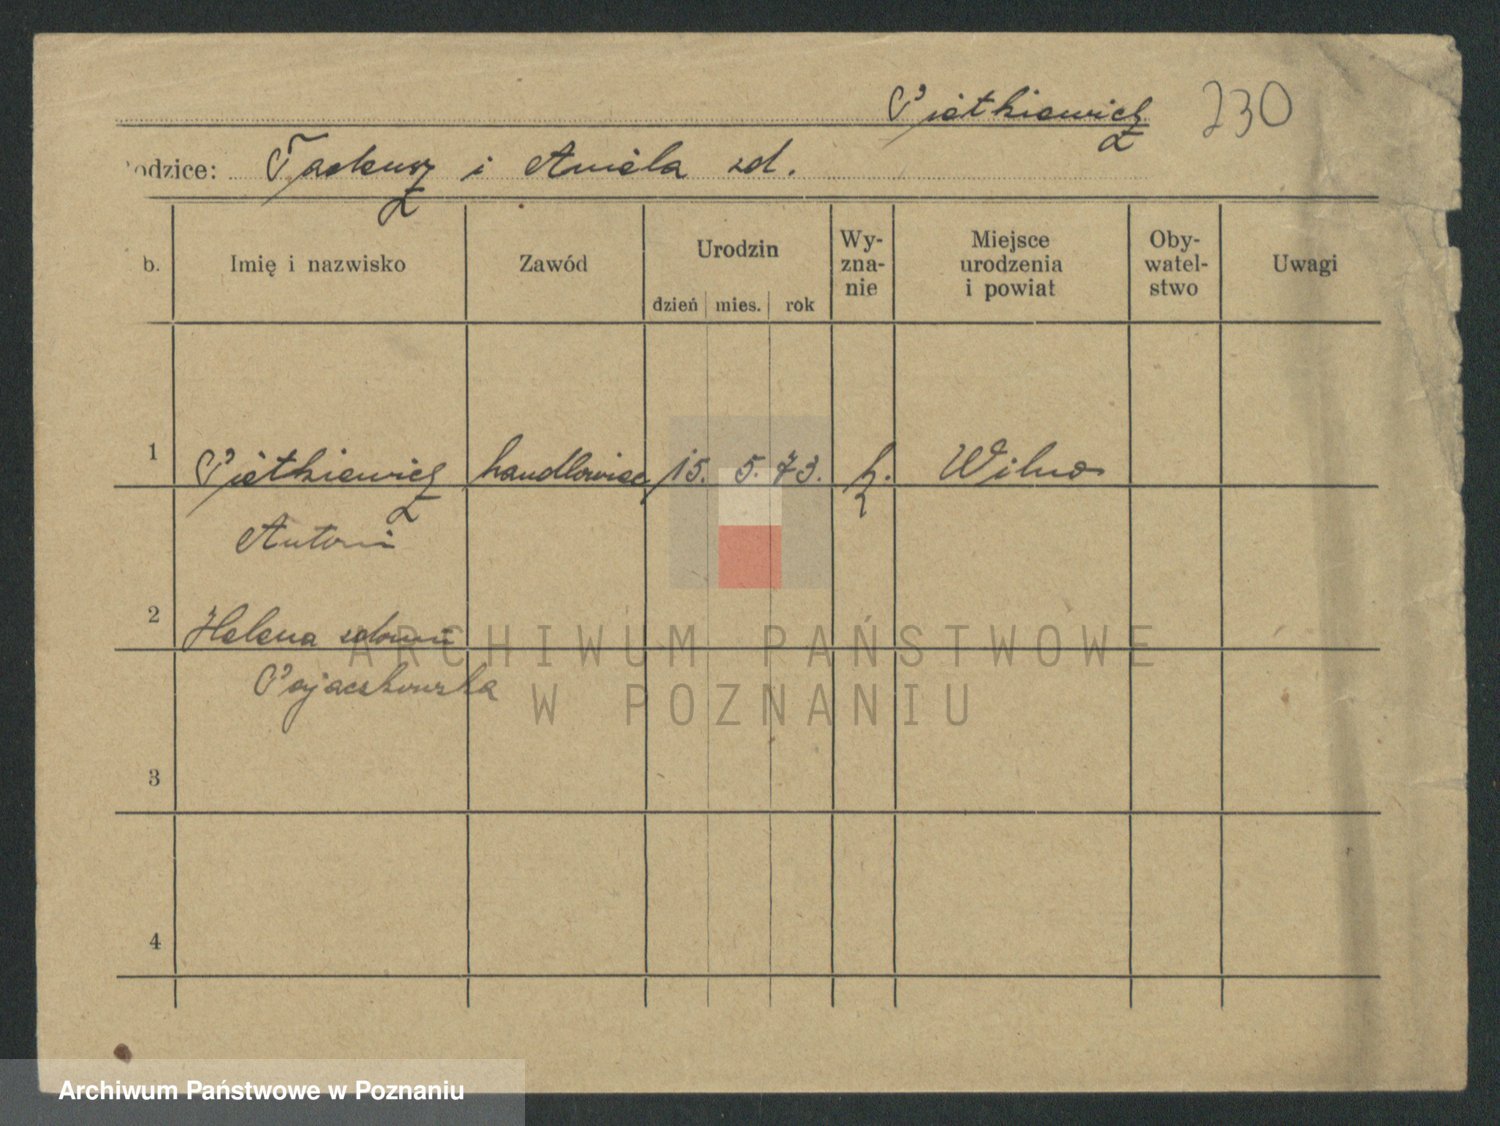 Pietkiewicz 230
odzice: Tadeusz i Aniela zd.
b. Imię i nazwisko Zawód Urodzin dzień mies. rok Wy-zna-nie Miejsce urodzenia i powiat Oby-watel-stwo Uwagi
1 Pietkiewicz handlowiec 15. 5. 73. k. Wilno
Antoni
2 Helena zdomu
Pajaczkowska
3
4
ARCHIWUM PAŃSTWOWE
W POZNANIU
Archiwum Państwowe w Poznaniu